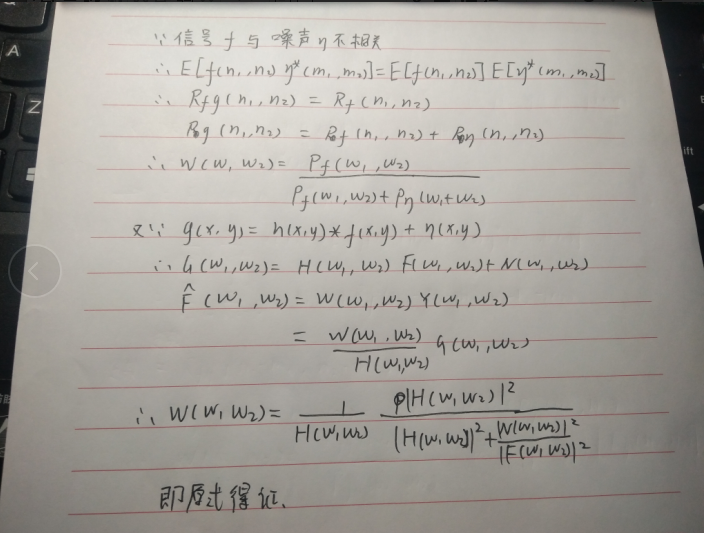 ∵ 信号 f 与 噪声 η 不相关
∴ E[f(n₁,n₂) η*(m₁,m₂)]=E[f(n₁,n₂)] E[η*(m₁,m₂)]
∴ Rfg(n₁,n₂) = Rf(n₁,n₂)
Rg(n₁,n₂) = Rf(n₁,n₂) + Rη(n₁,n₂)
∴ W(W,W₂)= Pf(W₁,W₂) / Pf(W₁,W₂)+Pη(W₁+W₂)
又∵ g(x,y)= h(x,y)*f(x,y)+η(x,y)
∴ G(W₁,W₂)= H(W₁,W₂) F(W₁,W₂)+N(W₁,W₂)
F̂(W₁,W₂)=W(W₁,W₂)Y(W₁,W₂)
= W(W₁,W₂) / H(W₁W₂) G(W₁,W₂)
∴ W(W,W₂)= 1 / H(W₁W₂) |H(W,W₂)|² / |H(W,W₂)|²+ W(W,W₂)|² / |F(W,W₂)|²
即原式得证.
A
Z
ift